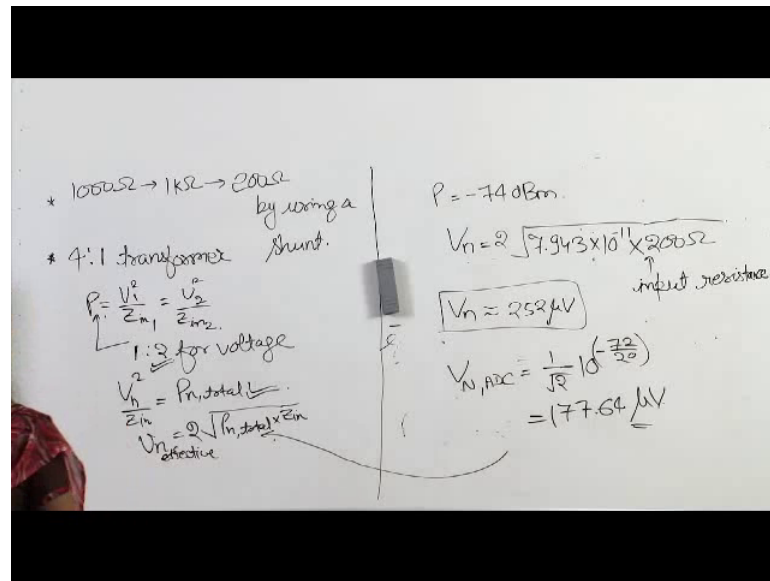 * 1000Ω → 1kΩ → 200Ω
by using a
shunt.
* 4:1 transformer
P = V₁²/Zin₁ = V₂²/Zin₂.
1:2 for voltage
Vn²/Zin = Pn,total.
Vn effective = 2√(Pn,total × Zin)
P = -74 dBm.
Vn = 2 √(7.943×10⁻¹¹×200Ω)
input resistance
Vn ≈ 252μV
VN,ADC = 1/√2 10^(-72/20)
= 177.64 μV